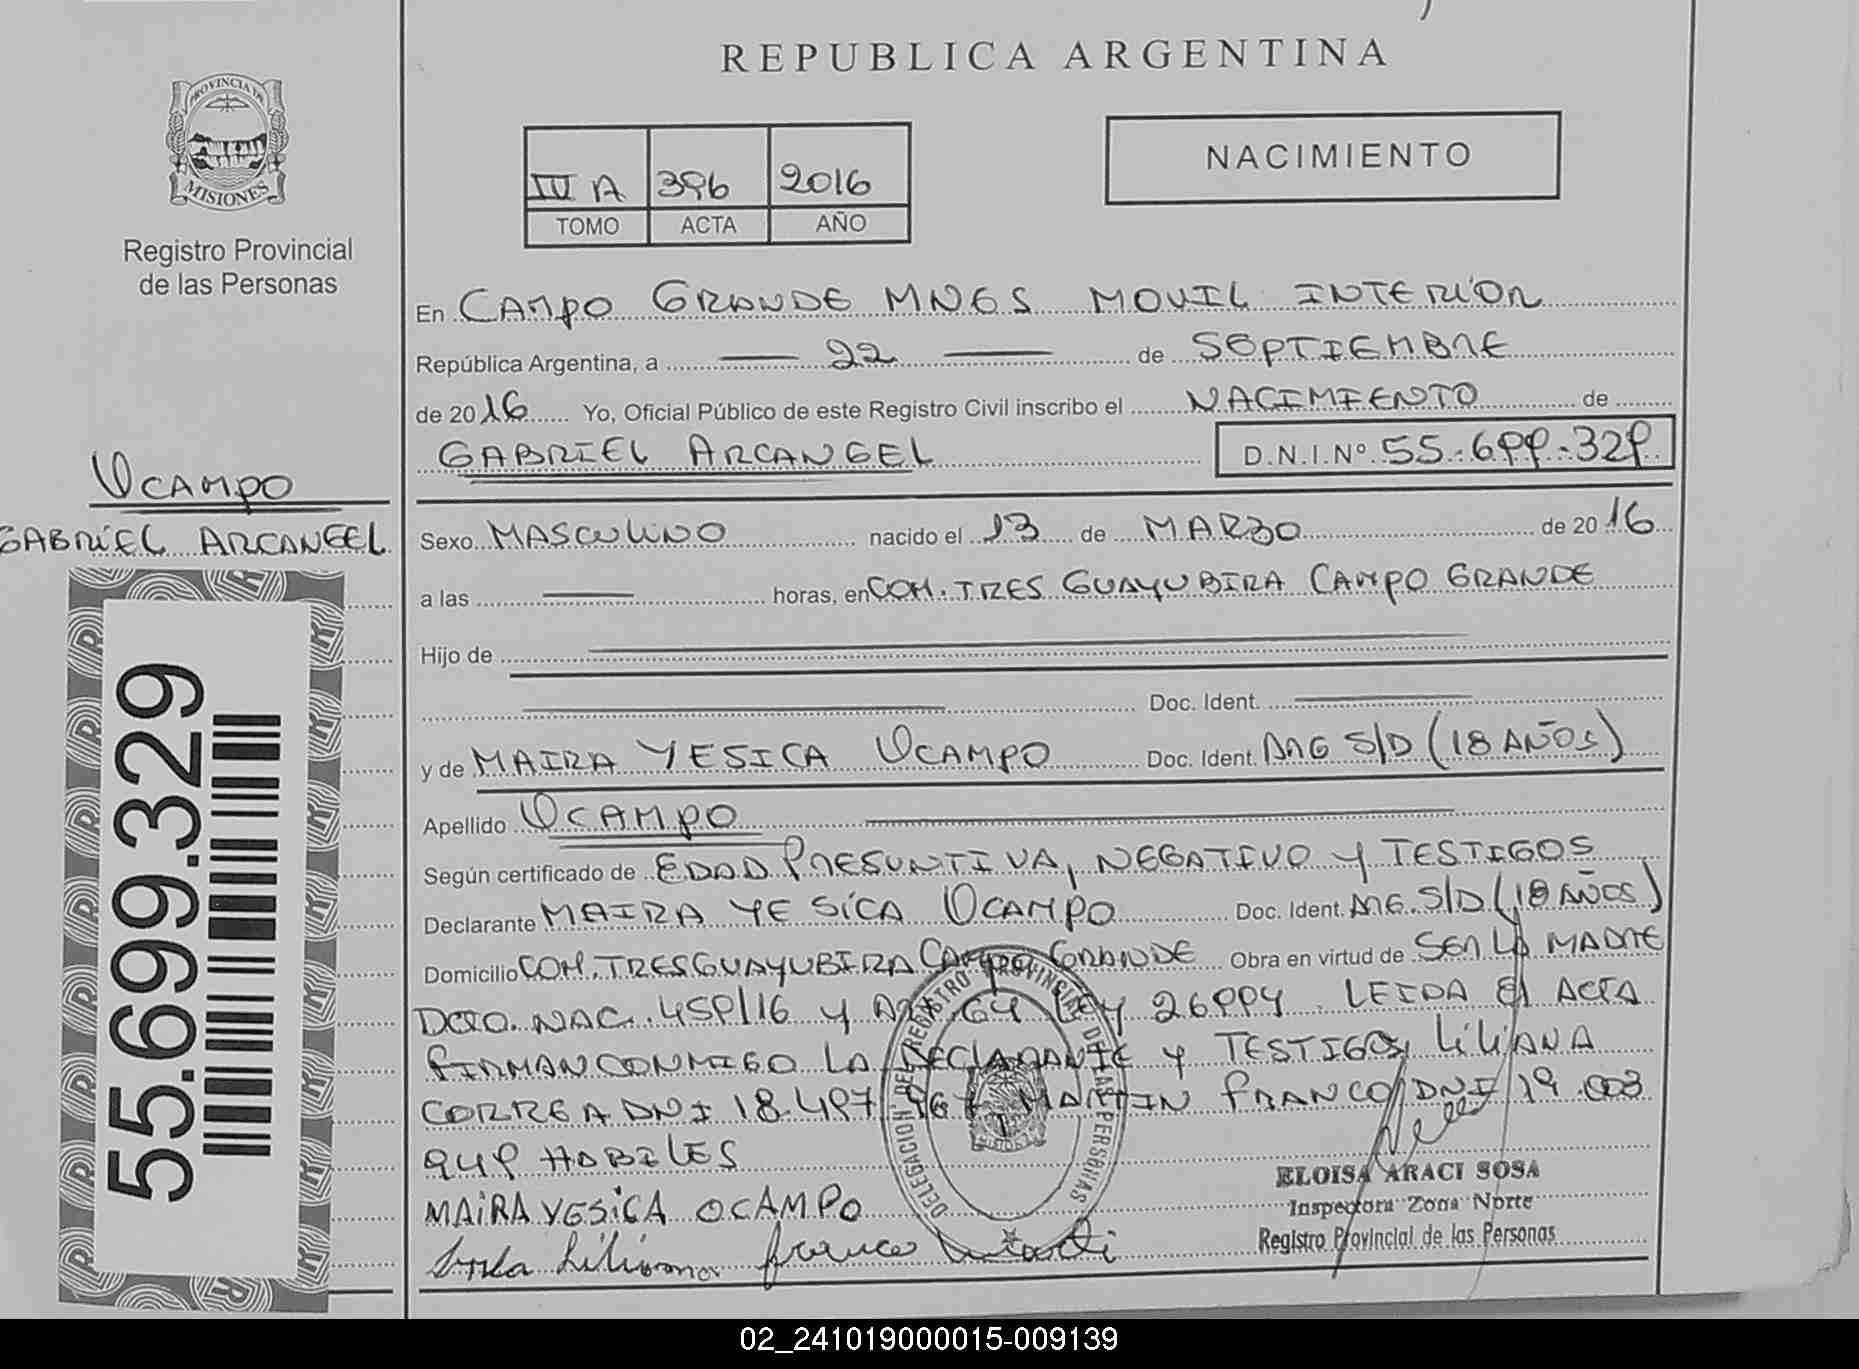 REPUBLICA ARGENTINA
PROVINCIA DE
MISIONES
Registro Provincial
de las Personas
III A 396 2016
TOMO ACTA AÑO
NACIMIENTO
En CAMPO GRANDE MNES MOVIL INTERIOR
República Argentina, a 22 de SEPTIEMBRE
de 2016 Yo, Oficial Público de este Registro Civil inscribo el NACIMIENTO de
GABRIEL ARCANGEL D.N.I.Nº 55.699.329
OCAMPO
GABRIEL ARCANGEL
Sexo MASCULINO nacido el 13 de MARZO de 2016
a las horas, en COM. TRES GUAYUBIRA CAMPO GRANDE
Hijo de
Doc. Ident.
y de MAIRA YESICA OCAMPO Doc. Ident. ARG S/D (18 AÑOS)
Apellido OCAMPO
Según certificado de EDAD PRESUNTIVA, NEGATIVO Y TESTIGOS
Declarante MAIRA YESICA OCAMPO Doc. Ident. ARG. S/D (18 AÑOS)
Domicilio COM. TRES GUAYUBIRA CAMPO GRANDE Obra en virtud de SER LA MADRE
DCTO. NAC. 459/16 Y ART 64 LEY 26994. LEIDA EL ACTA
FIRMAN CONMIGO LA DECLARANTE Y TESTIGOS LILIANA
CORREA DNI 18.497 MARTIN FRANCO DNI 19.003
949 HABILES
MAIRA YESICA OCAMPO
Liliana franco
DELEGACION DEL REGISTRO PROVINCIAL DE LAS PERSONAS
MISIONES
ELOISA ARACI SOSA
Inspectora Zona Norte
Registro Provincial de las Personas
55.699.329
02_241019000015-009139